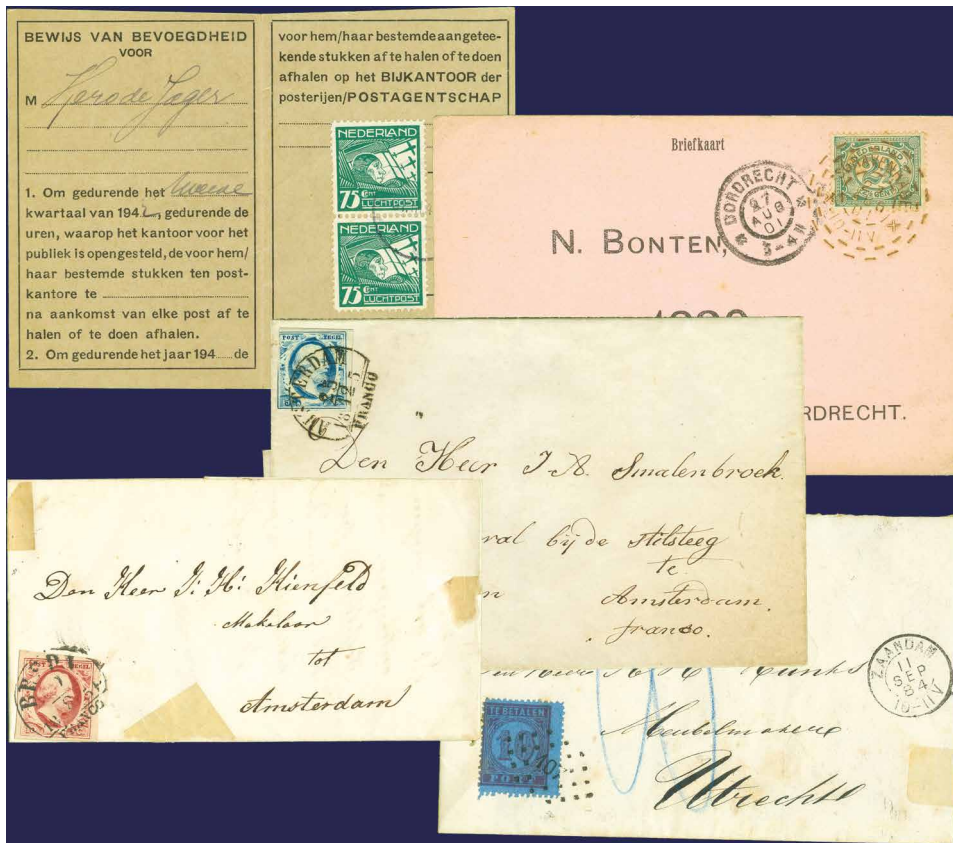 BEWIJS VAN BEVOEGDHEID
VOOR
M Hero de Jager
1. Om gedurende het
kwartaal van 1942, gedurende de
uren, waarop het kantoor voor het
publiek is opengesteld, de voor hem/
haar bestemde stukken ten post-
kantore te
na aankomst van elke post af te
halen of te doen afhalen.
2. Om gedurende het jaar 194 de
voor hem/haar bestemde aangetee-
kende stukken af te halen of te doen
afhalen op het BIJKANTOOR der
posterijen/POSTAGENTSCHAP
NEDERLAND
75 CNT
LUCHTPOST
NEDERLAND
75 CNT
LUCHTPOST
Briefkaart
DORDRECHT
27
AUG
01
NEDERLAND
N. BONTEN,
RDRECHT.
POST ZEGEL
AMSTERDAM
FRANCO
Den Heer J A. Smalenbroek
bij de stilsteeg
te
Amsterdam
franco.
Den Heer J: H: Kienfeld
Makelaar
tot
Amsterdam
POST ZEGEL
BREDA
FRANCO
ZAANDAM
11
SEP
84
10-11V
Meubelmaker
Utrecht
TE BETALEN
10
PORT
107